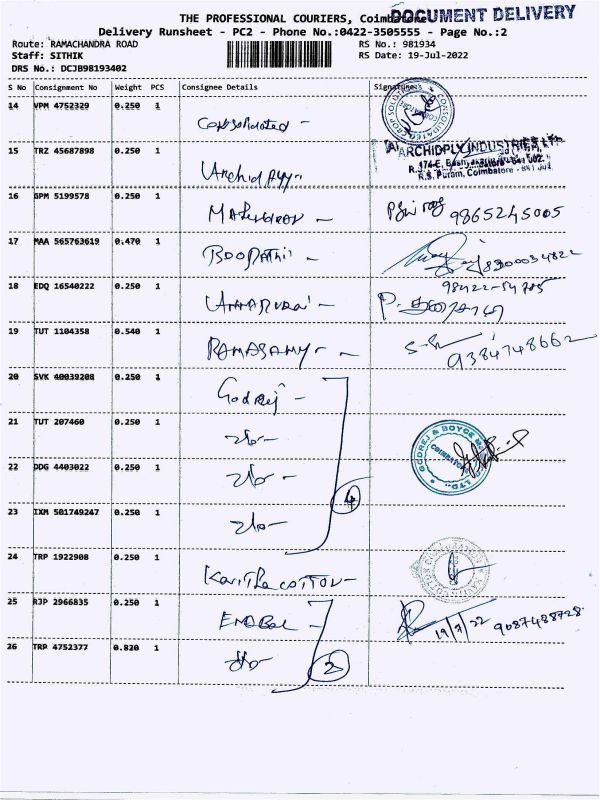 DOCUMENT DELIVERY
THE PROFESSIONAL COURIERS, Coimbatore
Delivery Runsheet - PC2 - Phone No.:0422-3505555 - Page No.:2
Route: RAMACHANDRA ROAD RS No.: 981934
Staff: SITHIK RS Date: 19-Jul-2022
DRS No.: DCJB98193402
S No Consignment No Weight PCS Consignee Details Signature
14 VPM 4752329 0.250 1 Consolidated -
15 TRZ 45687898 0.250 1 Archid Ply ARCHIDPLY INDUSTRIES LTD
174-E,
R.S. Puram, Coimbatore
16 GPM 5199578 0.250 1 9865245005
17 MAA 565763619 0.470 1 Boopathi - 8300034822
18 EDQ 16540222 0.250 1 Annadurai - 98422-54785
19 TUT 1104358 0.540 1 RAMASAMY - 9384748662
20 SVK 40039208 0.250 1 Godrej -
21 TUT 207460 0.250 1 GODREJ & BOYCE
22 DDG 4403022 0.250 1
23 IXM 501749247 0.250 1 4
24 TRP 1922908 0.250 1 Kavitha COTTON -
25 RJP 2966835 0.250 1 19/7/22 9087488728
26 TRP 4752377 0.820 1 2